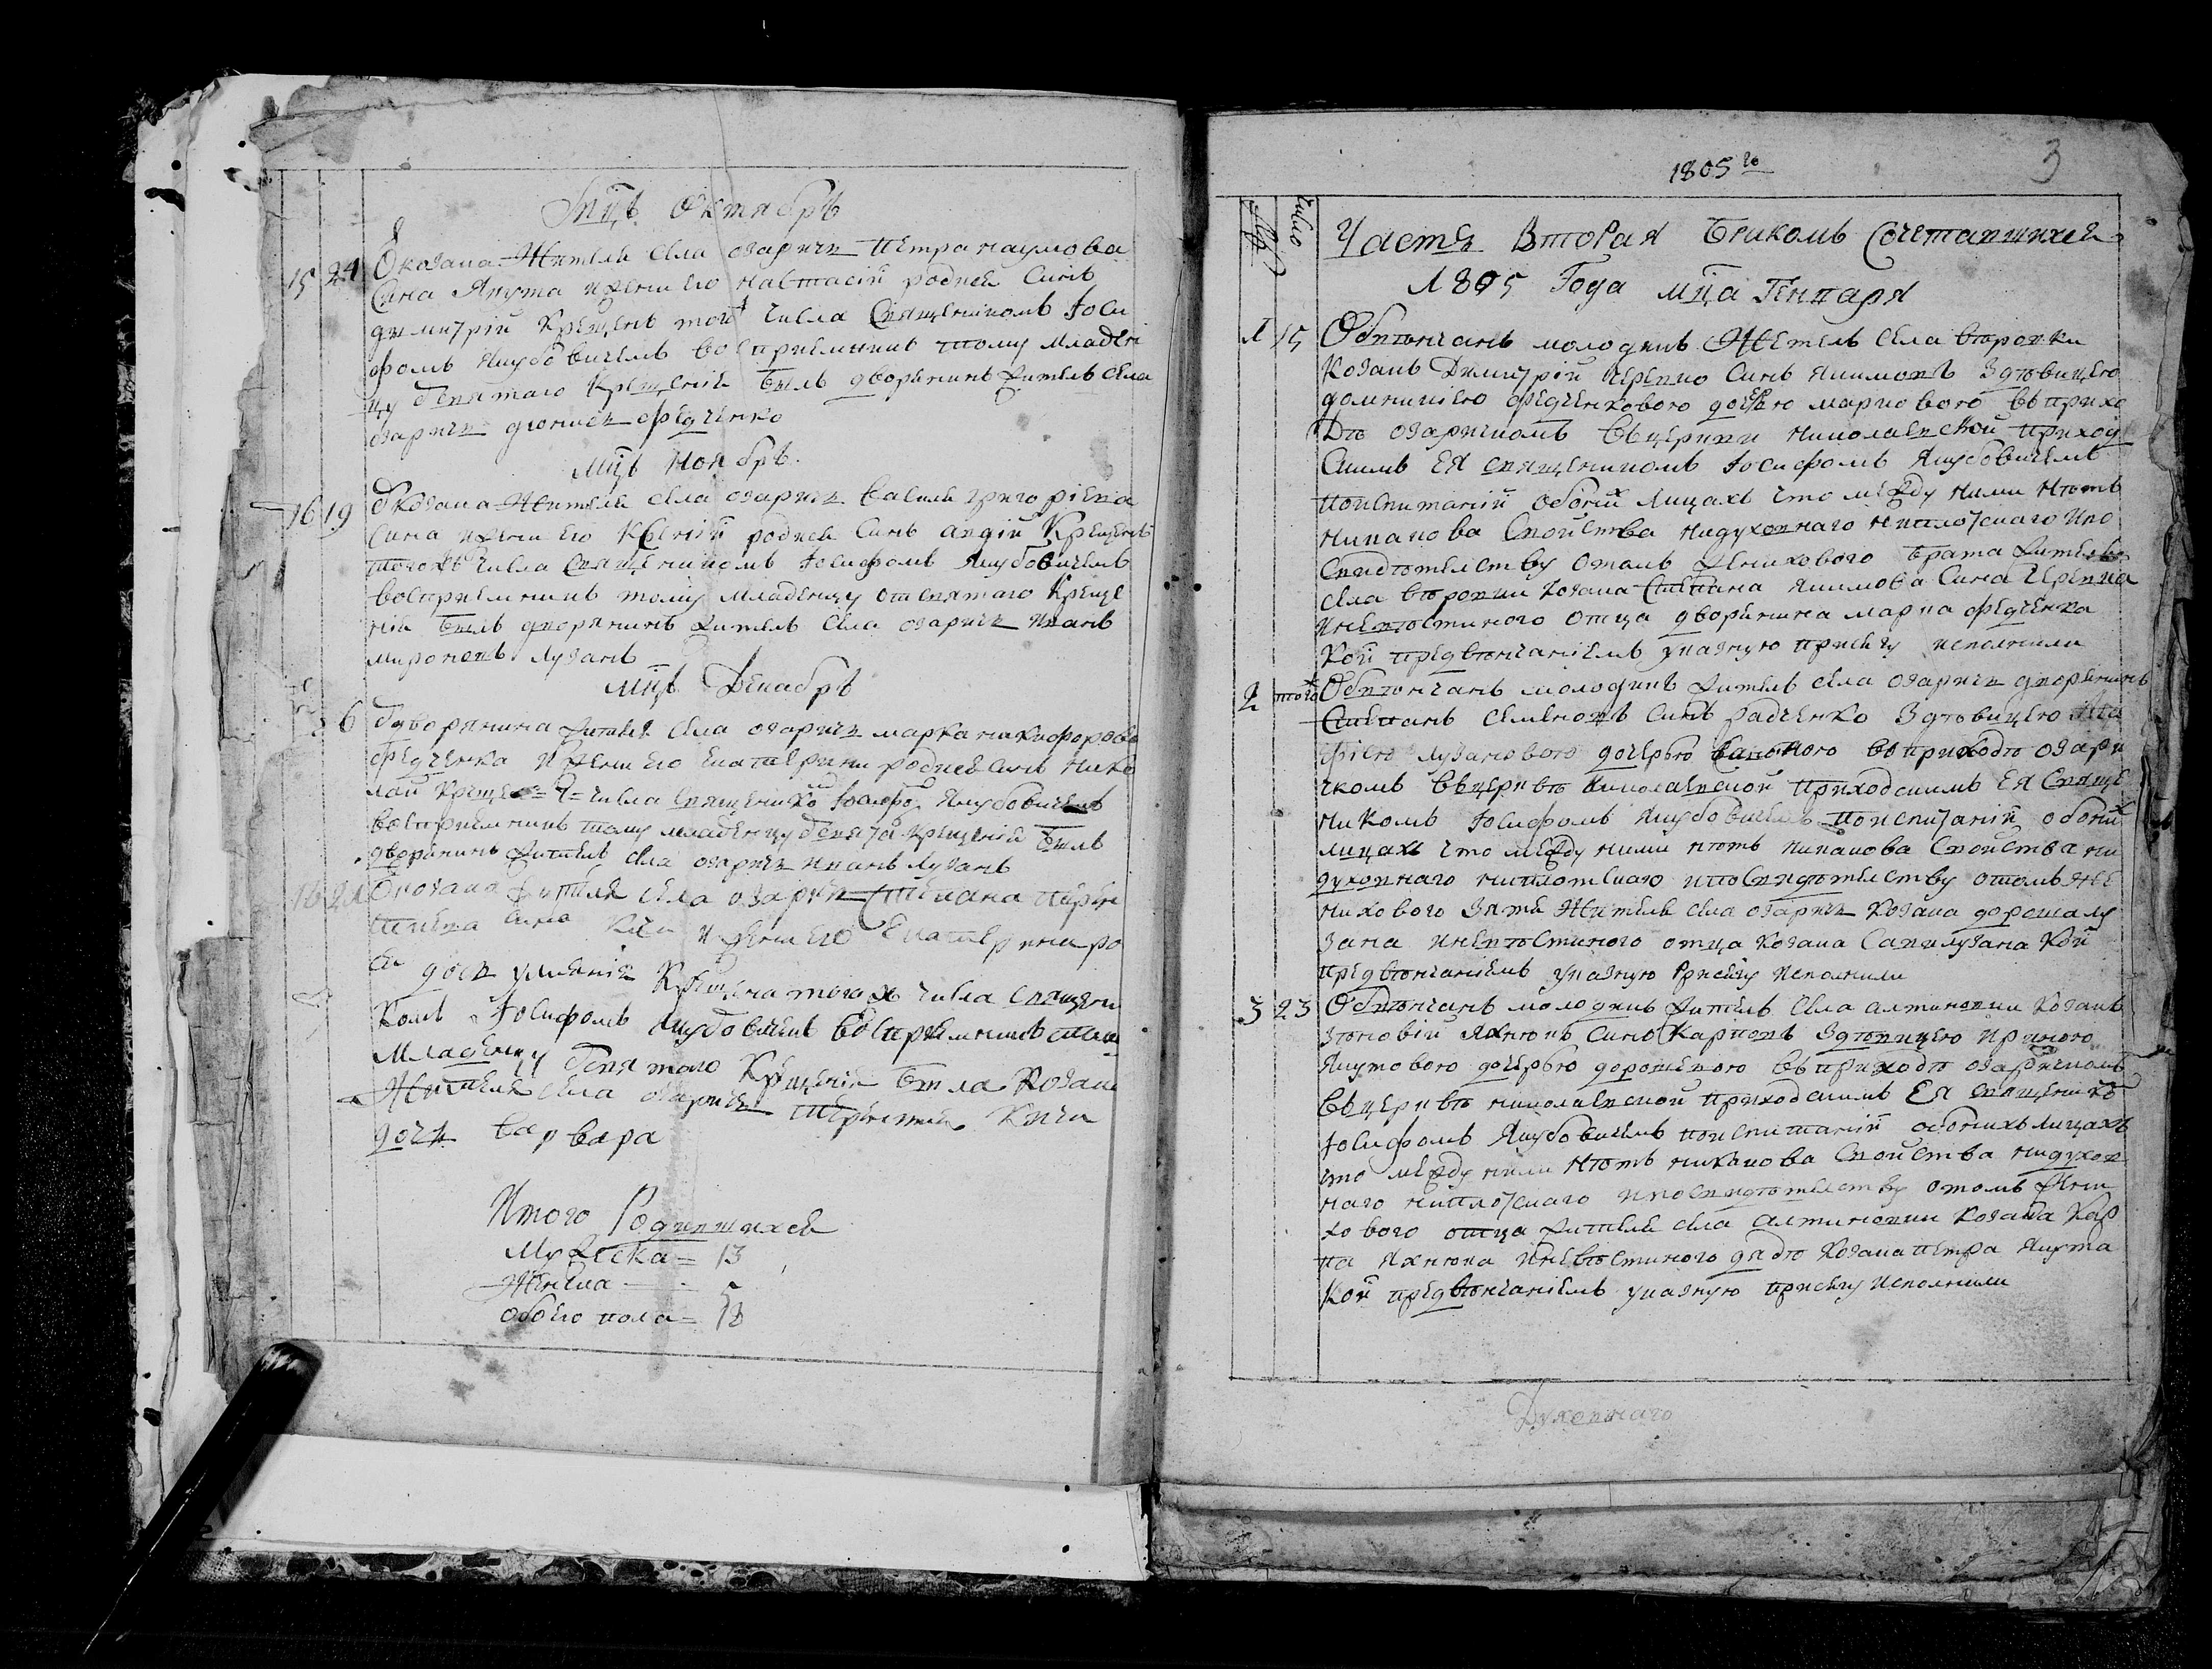 Мцъ Октябръ
15 24 У козака Жителя села озаричъ Петра наумова
сина Якута и жени его настасіи родися Синъ
димитрій крещенъ того ж числа Священикомъ Іоси
фомъ Якубовичемъ воспріемникъ тому младен
цу от святаго Крещенія билъ дворянинъ житель села
озаричъ дюнисъ федченко
Мцъ Ноябръ
16 19 У козака Жителя села озаричъ василя григоріева
Сина и жени его Ксеніи родися Синъ авдій Крещенъ
того жъ числа Священикомъ Іосифомъ Якубовичемъ
воспріемникъ тому младенцу от святаго Креще
нія билъ дворянинъ житель села озаричъ иванъ
мироновъ лузанъ
мцъ Декабръ
6 У дворянина жителя села озаричъ марка никифорова
федченка и жени его екатерини родися Синъ нико
лай крещен числа священико Іосифо Якубовичемъ
воспріемникъ тому младенцу от свята крещенія билъ
дворянинъ житель села озаричъ иванъ лузанъ
16 21 У козака жителя села озаричъ Степана
сина и жени его Екатерини ро
ся дочъ уліянія Крещена того ж числа священи
комъ Іосифомъ Якубовичемъ воспріемникъ
младенцу от святаго Крещенія била козака
Жителя села озаричъ
дочъ варвара
Итого Родившихся
Мужеска = 13
Женска — 5
обоего пола = 18
1805го
3
число
Частъ Вторая Бракомъ Сочетавшихся
1805 Года мца Генваря
1 15 Обвѣнчанъ молодикъ Житель села вѣровки
Козакъ Димитрій Черепко Синъ якимовъ З дѣвицею
домникіею федченковою дочерю марковою въ прихо
дѣ озаричкомъ въ церкви николаевской приход
скимъ ея священикомъ Іосифомъ Якубовичемъ
по испитаніи обоихъ лицахъ что между ними нѣтъ
никакова Свойства ни духовнаго ни плотскаго и по
Свидѣтелству о томъ женихового брата жителя
села вѣровки козака Степана якимова Сина Черепка
и невѣстиного отца дворянина марка федченка
Кои предвѣнчаніемъ указную присягу исполнили
2 того ж Обвѣнчанъ молодикъ житель села озаричъ дворянинъ
Степанъ семеновъ Синъ радченко З дѣвицею
фіею лузановою дочерью савиною въ приходѣ озари
чкомъ въ церквѣ николаевской приходскимъ ея Свяще
никомъ Іосифомъ Якубовичемъ по испитаніи обоихъ
лицахъ что между ними нѣтъ никакова Свойства ни
духовнаго ни плотскаго и по Свидѣтелству о томъ же
нихового зятя Жителя села озаричъ Козака дороша лу
зана и невѣстиного отца козака Сави лузана Кои
предвѣнчаніемъ указную присягу исполнили
3 23 Обвѣнчанъ молодикъ житель села алтиновки Козакъ
Зѣновій Яхнюкъ Синъ Карповъ З дѣвицею Ириною
Якутовою дочерью дорошевою въ приходѣ озаричкомъ
въ церквѣ николаевской приходскимъ Ея священико
Іосифомъ Якубовичемъ по испитаніи обоихъ лицахъ
что между ними нѣтъ никакова Свойства ни духов
наго ни плотскаго и по свидѣтелству о томъ жени
хового отца жителя села алтиновки козака Кар
па Яхнюка и невѣстиного дядѣ козака петра якута
Кои предвѣнчаніемъ указную присягу исполнили
Духовнаго